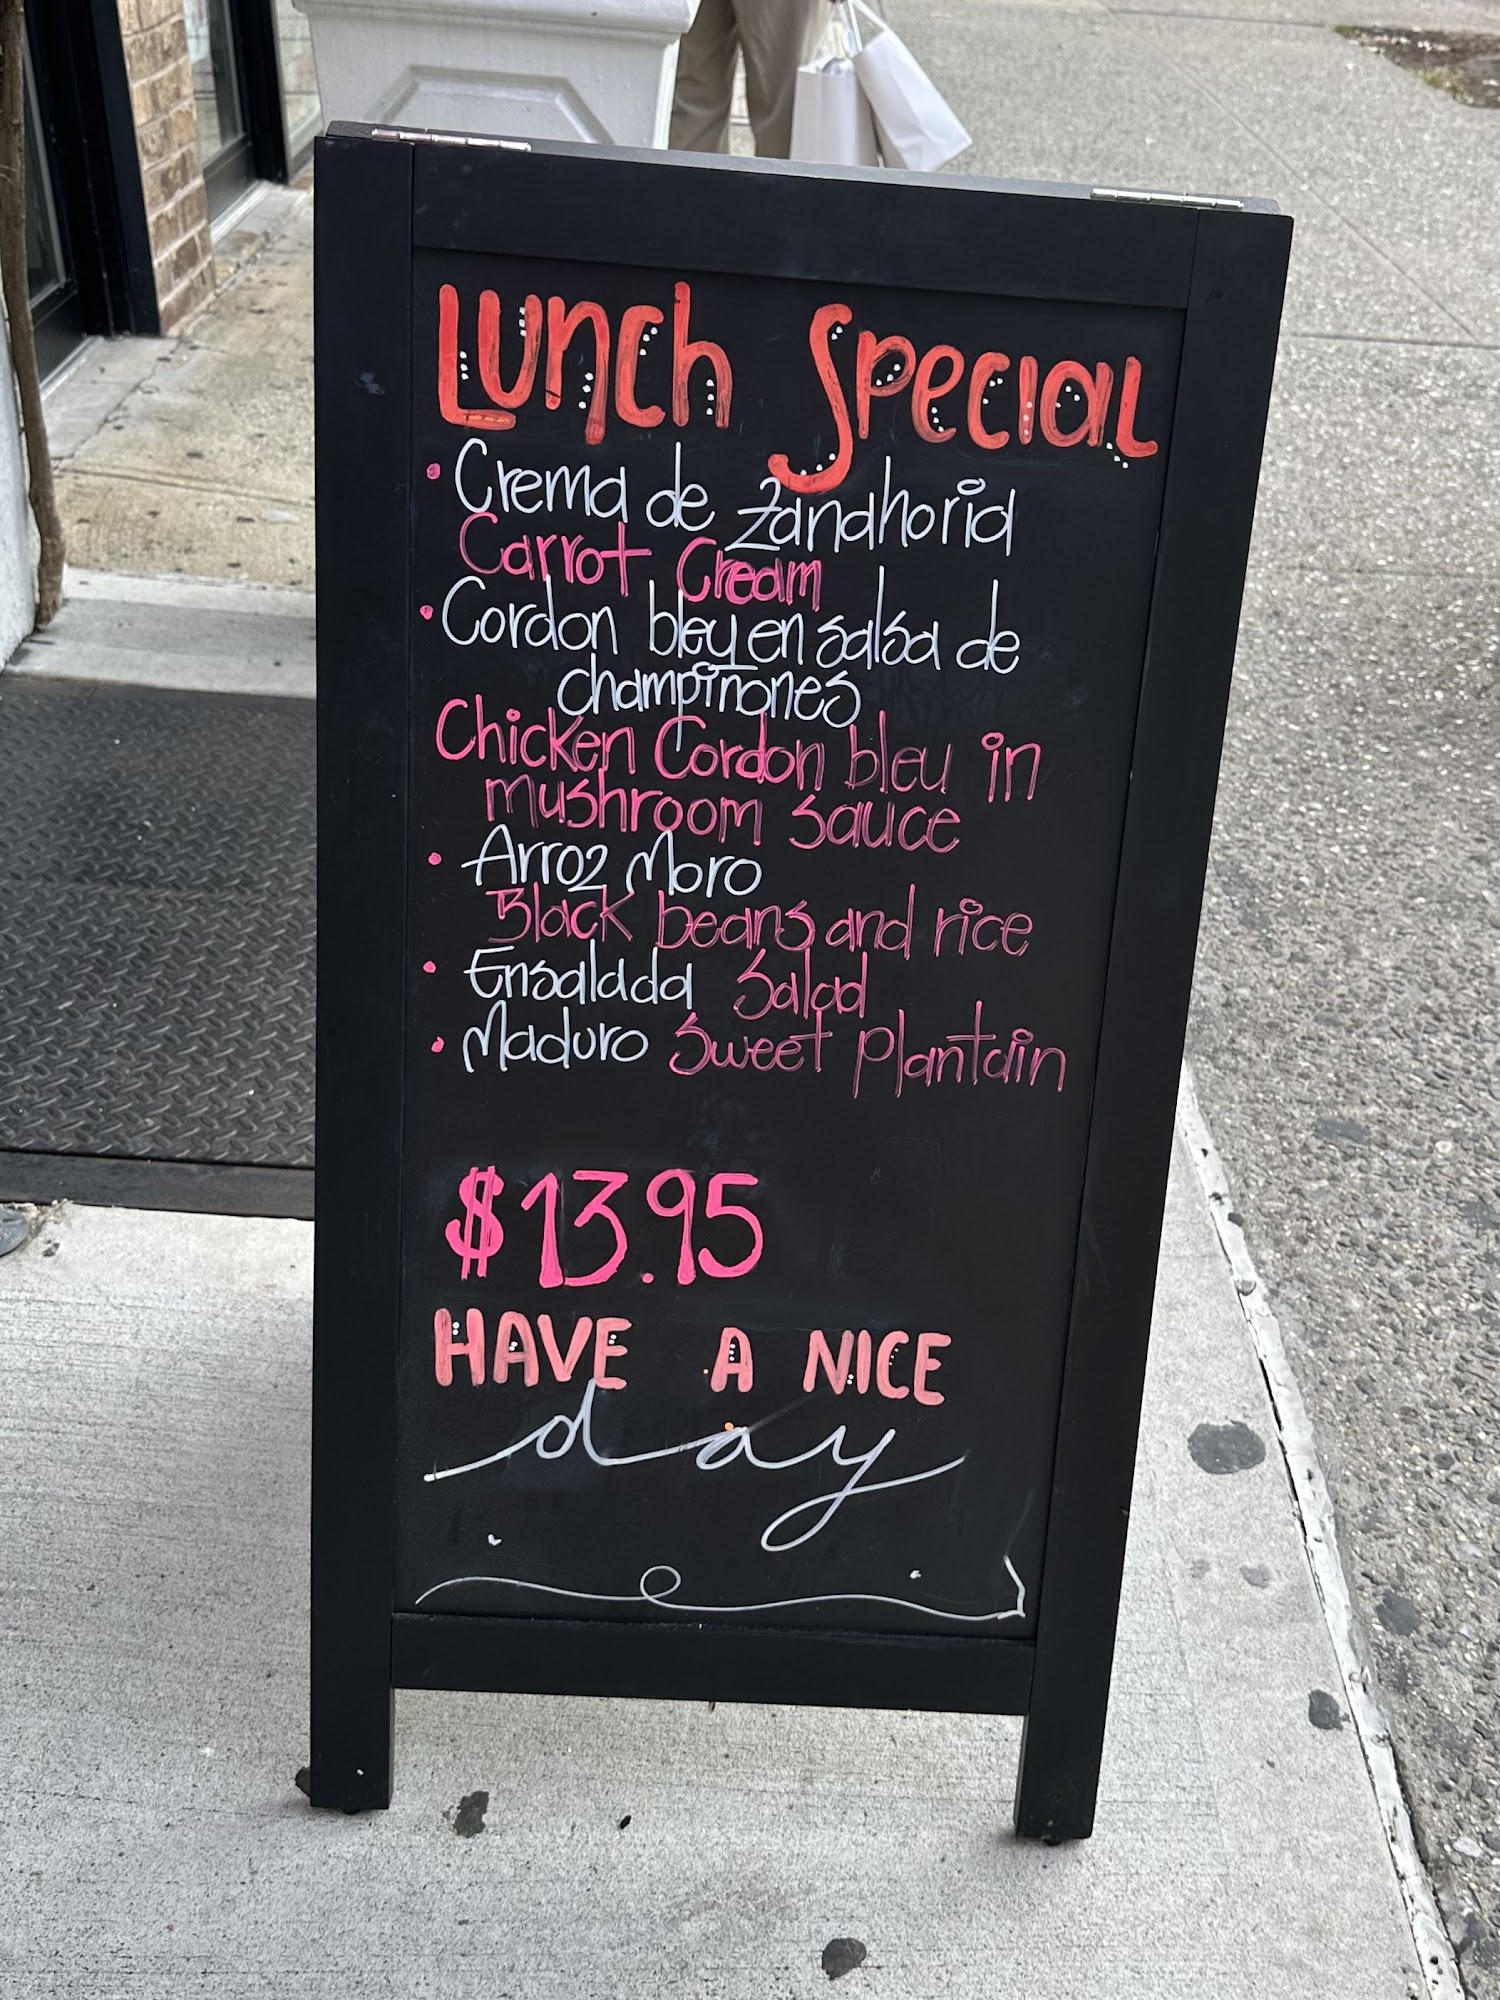 Lunch Special
• Crema de Zanahoria
Carrot Cream
• Cordon bleu en salsa de
champiñones
Chicken Cordon bleu in
mushroom sauce
• Arroz Moro
Black beans and rice
• Ensalada Salad
• Maduro Sweet plantain
$13.95
HAVE A NICE
day